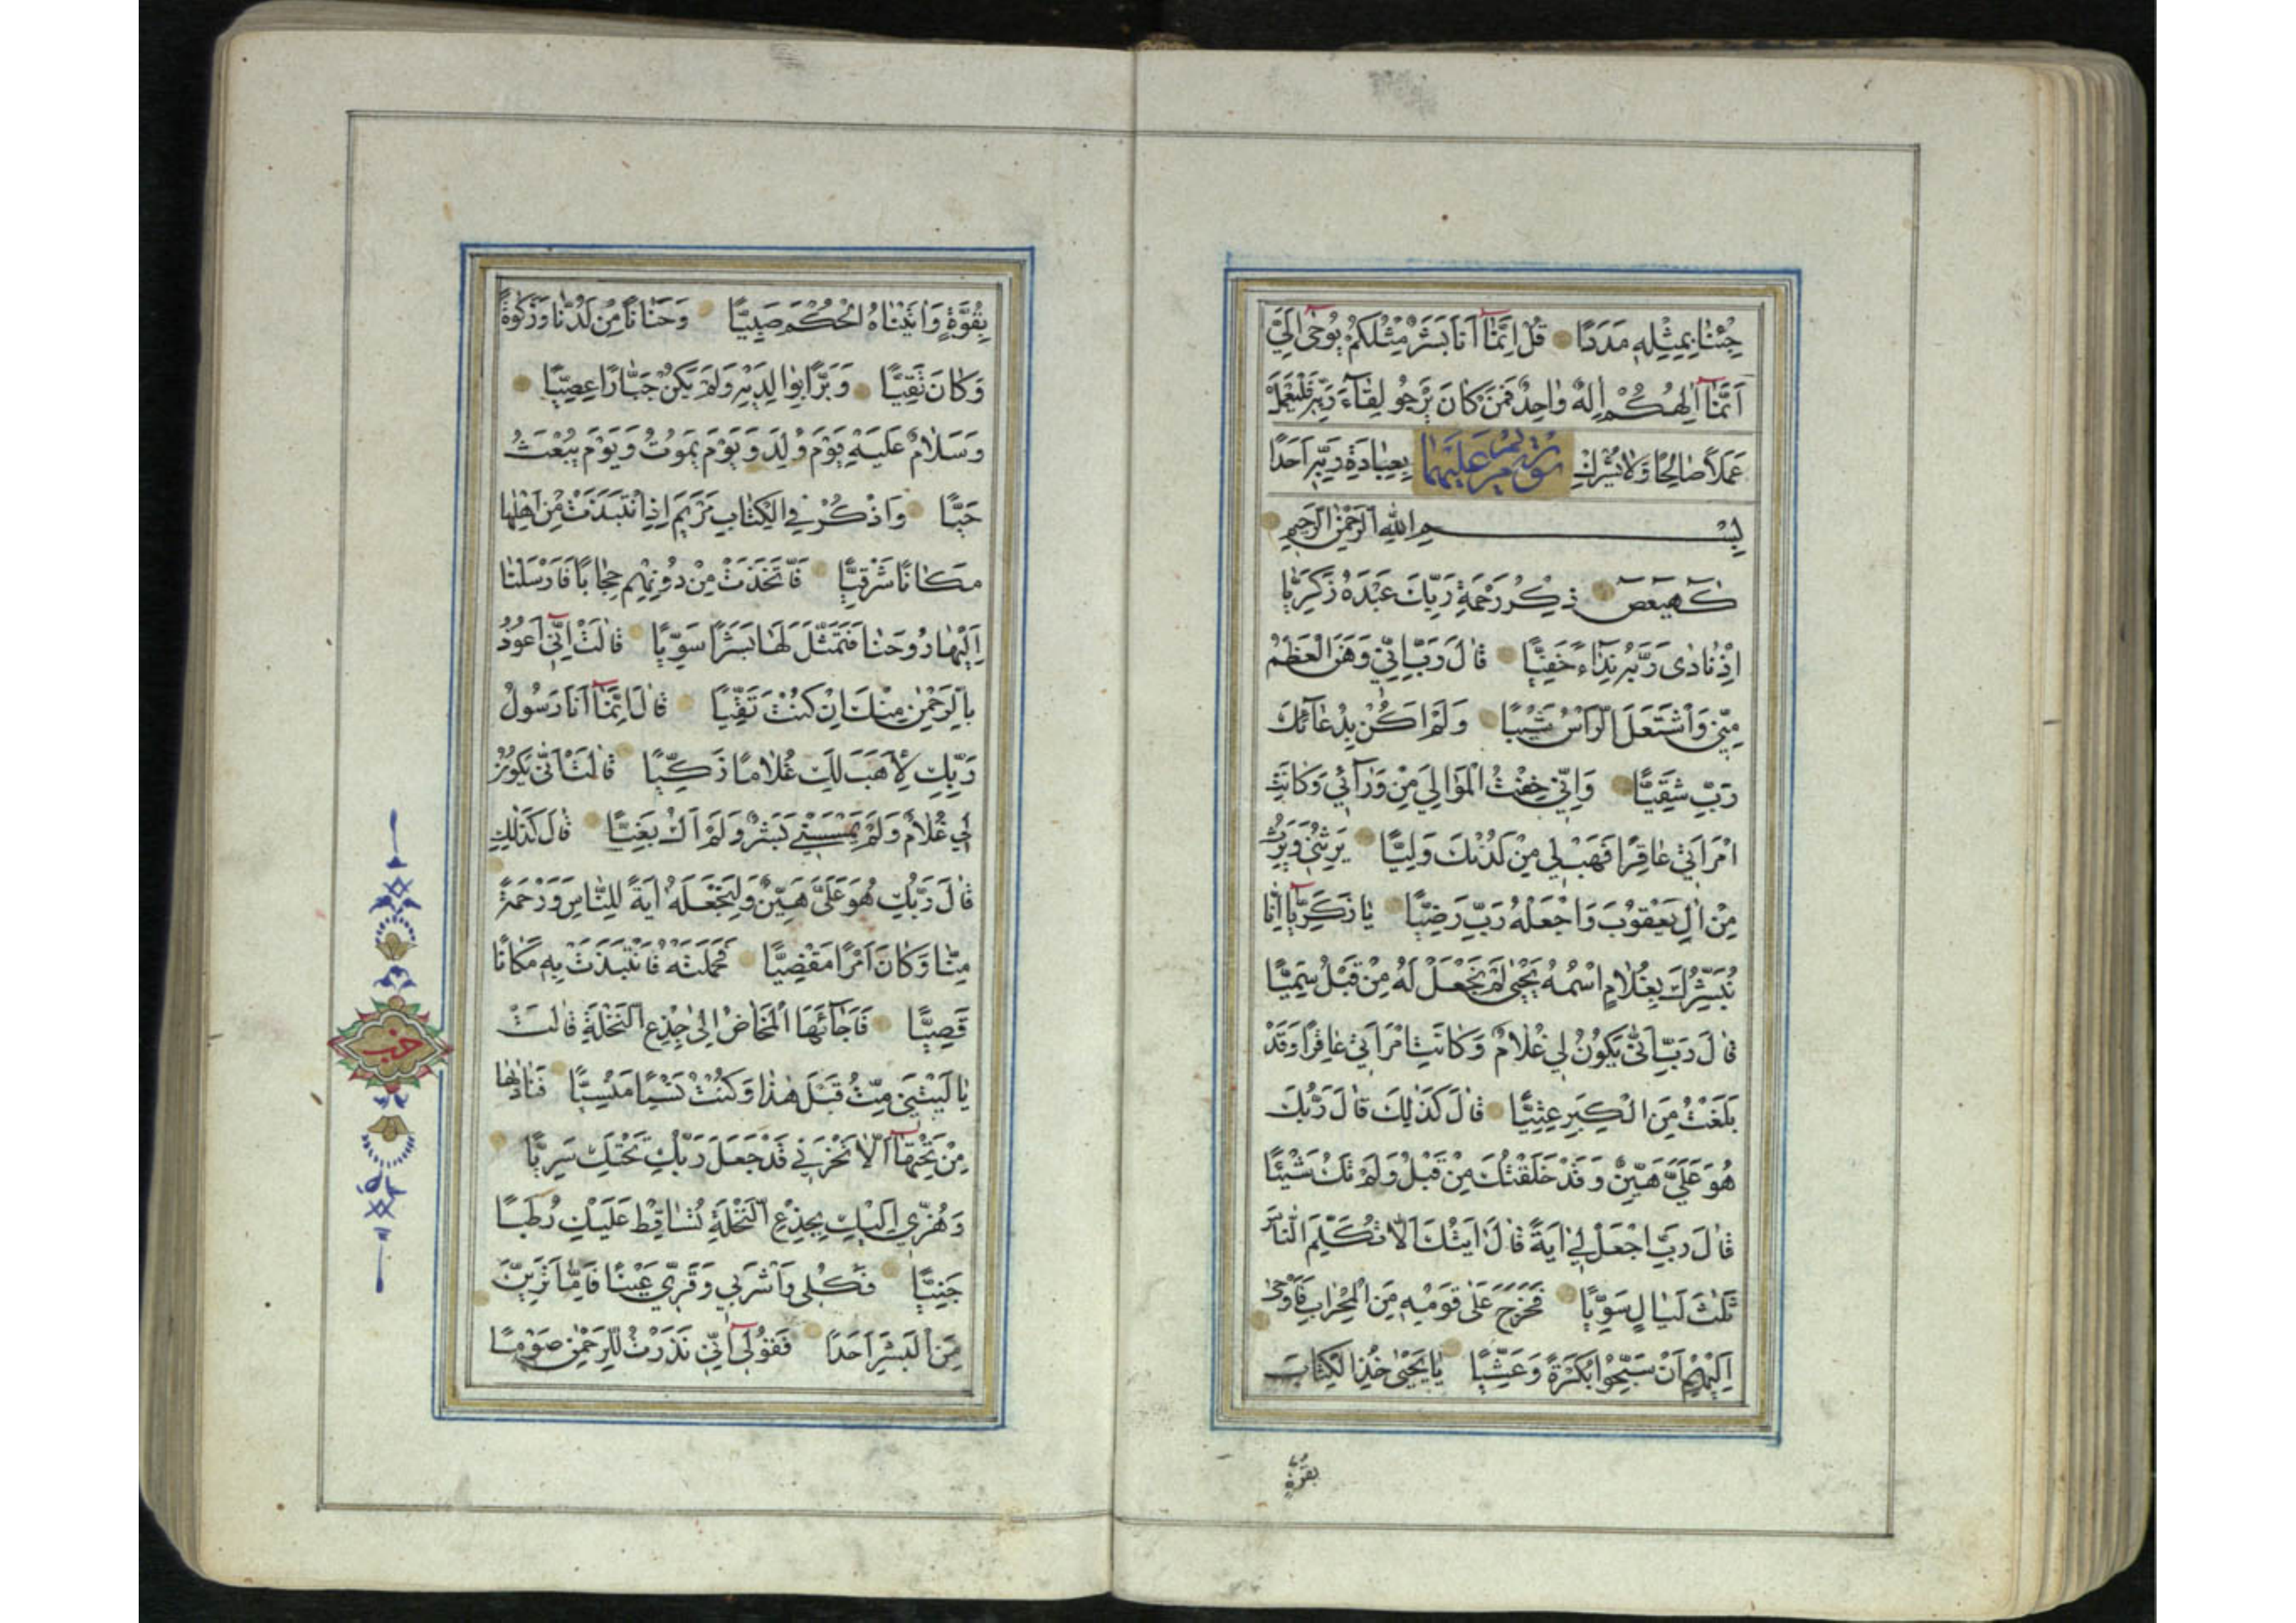 جِئْنَا بِمِثْلِهِ مَدَدًا قُلْ اِنَّمَٓا اَنَا بَشَرٌ مِثْلُكُمْ يُوحٰٓى اِلَيَّ
اَنَّمَٓا اِلٰهُكُمْ اِلٰهٌ وَاحِدٌ فَمَنْ كَانَ يَرْجُو لِقَٓاءَ رَبِّهِ فَلْيَعْمَلْ
عَمَلًا صَالِحًا وَلَا يُشْرِكْ بِعِبَادَةِ رَبِّهِ اَحَدًا
بِسْمِ اللّٰهِ الرَّحْمٰنِ الرَّحِيمِ
كٓهٰيٰعٓصٓ ذِكْرُ رَحْمَةِ رَبِّكَ عَبْدَهُ زَكَرِيَّا
اِذْ نَادٰى رَبَّهُ نِدَٓاءً خَفِيًّا قَالَ رَبِّ اِنِّي وَهَنَ الْعَظْمُ
مِنِّي وَاشْتَعَلَ الرَّاْسُ شَيْبًا وَلَمْ اَكُنْ بِدُعَٓائِكَ
رَبِّ شَقِيًّا وَاِنِّي خِفْتُ الْمَوَالِيَ مِنْ وَرَٓائِي وَكَانَتِ
امْرَاَتِي عَاقِرًا فَهَبْ لِي مِنْ لَدُنْكَ وَلِيًّا يَرِثُنِي وَيَرِثُ
مِنْ اٰلِ يَعْقُوبَ وَاجْعَلْهُ رَبِّ رَضِيًّا يَا زَكَرِيَّٓا اِنَّا
نُبَشِّرُكَ بِغُلَامٍ اسْمُهُ يَحْيٰى لَمْ نَجْعَلْ لَهُ مِنْ قَبْلُ سَمِيًّا
قَالَ رَبِّ اَنّٰى يَكُونُ لِي غُلَامٌ وَكَانَتِ امْرَاَتِي عَاقِرًا وَقَدْ
بَلَغْتُ مِنَ الْكِبَرِ عِتِيًّا قَالَ كَذٰلِكَ قَالَ رَبُّكَ
هُوَ عَلَيَّ هَيِّنٌ وَقَدْ خَلَقْتُكَ مِنْ قَبْلُ وَلَمْ تَكُ شَيْئًا
قَالَ رَبِّ اجْعَلْ لِي اٰيَةً قَالَ اٰيَتُكَ اَلَّا تُكَلِّمَ النَّاسَ
ثَلٰثَ لَيَالٍ سَوِيًّا فَخَرَجَ عَلٰى قَوْمِهِ مِنَ الْمِحْرَابِ فَاَوْحٰى
اِلَيْهِمْ اَنْ سَبِّحُوا بُكْرَةً وَعَشِيًّا يَا يَحْيٰى خُذِ الْكِتَابَ
بقوة
بِقُوَّةٍ وَاٰتَيْنَاهُ الْحُكْمَ صَبِيًّا وَحَنَانًا مِنْ لَدُنَّا وَزَكٰوةً
وَكَانَ تَقِيًّا وَبَرًّا بِوَالِدَيْهِ وَلَمْ يَكُنْ جَبَّارًا عَصِيًّا
وَسَلَامٌ عَلَيْهِ يَوْمَ وُلِدَ وَيَوْمَ يَمُوتُ وَيَوْمَ يُبْعَثُ
حَيًّا وَاذْكُرْ فِي الْكِتَابِ مَرْيَمَ اِذِ انْتَبَذَتْ مِنْ اَهْلِهَا
مَكَانًا شَرْقِيًّا فَاتَّخَذَتْ مِنْ دُونِهِمْ حِجَابًا فَاَرْسَلْنَا
اِلَيْهَا رُوحَنَا فَتَمَثَّلَ لَهَا بَشَرًا سَوِيًّا قَالَتْ اِنِّٓي اَعُوذُ
بِالرَّحْمٰنِ مِنْكَ اِنْ كُنْتَ تَقِيًّا قَالَ اِنَّمَٓا اَنَا رَسُولُ
رَبِّكِ لِاَهَبَ لَكِ غُلَامًا زَكِيًّا قَالَتْ اَنّٰى يَكُونُ
لِي غُلَامٌ وَلَمْ يَمْسَسْنِي بَشَرٌ وَلَمْ اَكُ بَغِيًّا قَالَ كَذٰلِكِ
قَالَ رَبُّكِ هُوَ عَلَيَّ هَيِّنٌ وَلِنَجْعَلَهُ اٰيَةً لِلنَّاسِ وَرَحْمَةً
مِنَّا وَكَانَ اَمْرًا مَقْضِيًّا فَحَمَلَتْهُ فَانْتَبَذَتْ بِهِ مَكَانًا
قَصِيًّا فَاَجَٓائَهَا الْمَخَاضُ اِلٰى جِذْعِ النَّخْلَةِ قَالَتْ
يَا لَيْتَنِي مِتُّ قَبْلَ هٰذَا وَكُنْتُ نَسْيًا مَنْسِيًّا فَنَادٰيهَا
مِنْ تَحْتِهَٓا اَلَّا تَحْزَنِي قَدْ جَعَلَ رَبُّكِ تَحْتَكِ سَرِيًّا
وَهُزِّي اِلَيْكِ بِجِذْعِ النَّخْلَةِ تُسَاقِطْ عَلَيْكِ رُطَبًا
جَنِيًّا فَكُلِي وَاشْرَبِي وَقَرِّي عَيْنًا فَاِمَّا تَرَيِنَّ
مِنَ الْبَشَرِ اَحَدًا فَقُولِٓي اِنِّي نَذَرْتُ لِلرَّحْمٰنِ صَوْمًا
حزب